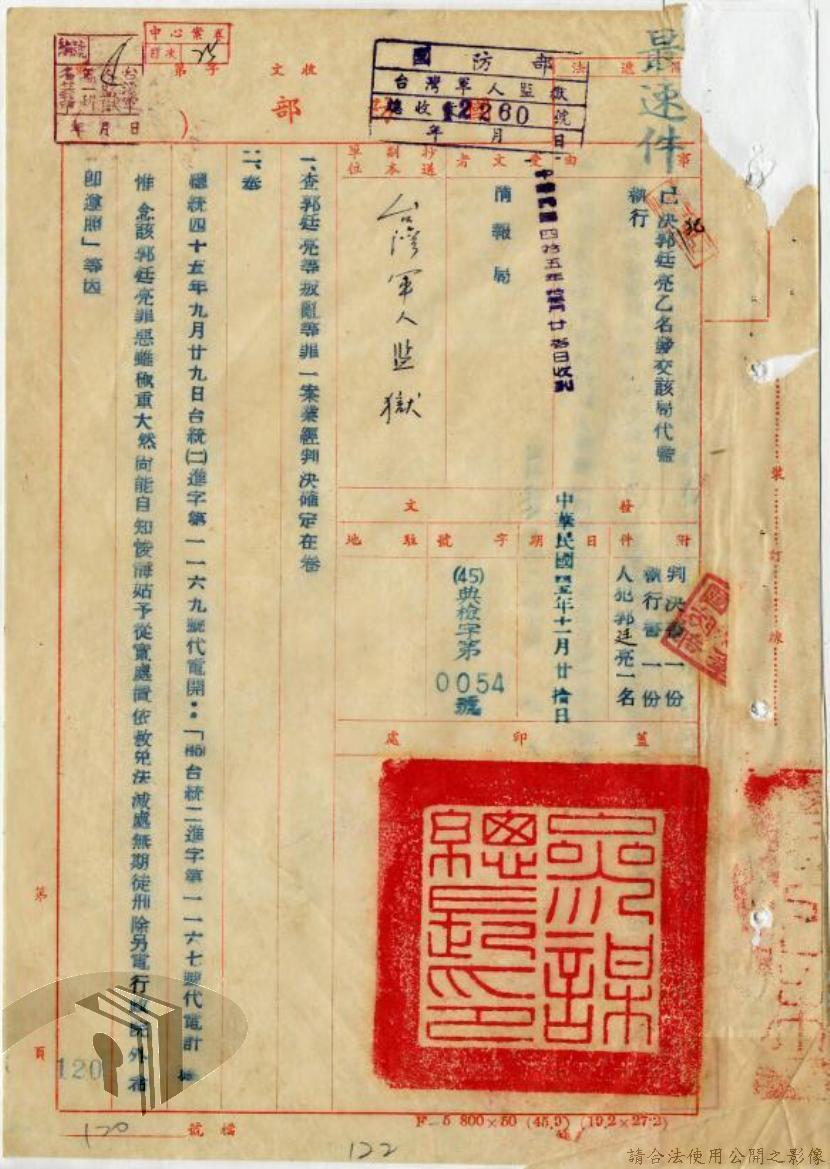 最速件
國防部
台灣軍人監獄
總收 2260 號
年 月 日
收文 字 第
部
中心案卷
目次 75
編號
年 月 日
事由
已決郭廷亮乙名發交該局代監
執行
受文者
情報局
中華民國四拾五年 月廿 日收到
抄送副本單位
台灣軍人監獄
發文
附件
判決書一份
執行書一份
人犯郭廷亮一名
日期
中華民國四五年十一月廿拾日
字號
(45)典檢字第
0054
號
駐地
蓋印處
參謀總長印
一、查郭廷亮等叛亂等罪一案業經判決確定在卷
二、奉
總統四十五年九月廿九日台統㈡進字第一一六九號代電開:「 台統二進字第一一六七號代電計
惟念該郭廷亮罪惡雖極重大然尚能自知悛悔姑予從寬處置依赦免法減處無期徒刑除另電行政院外希
即遵照」等因
裝訂線
第
頁
120
120
檔號
F-5 800×50 (45.9) (19.2×27.2)
122
請合法使用公開之影像